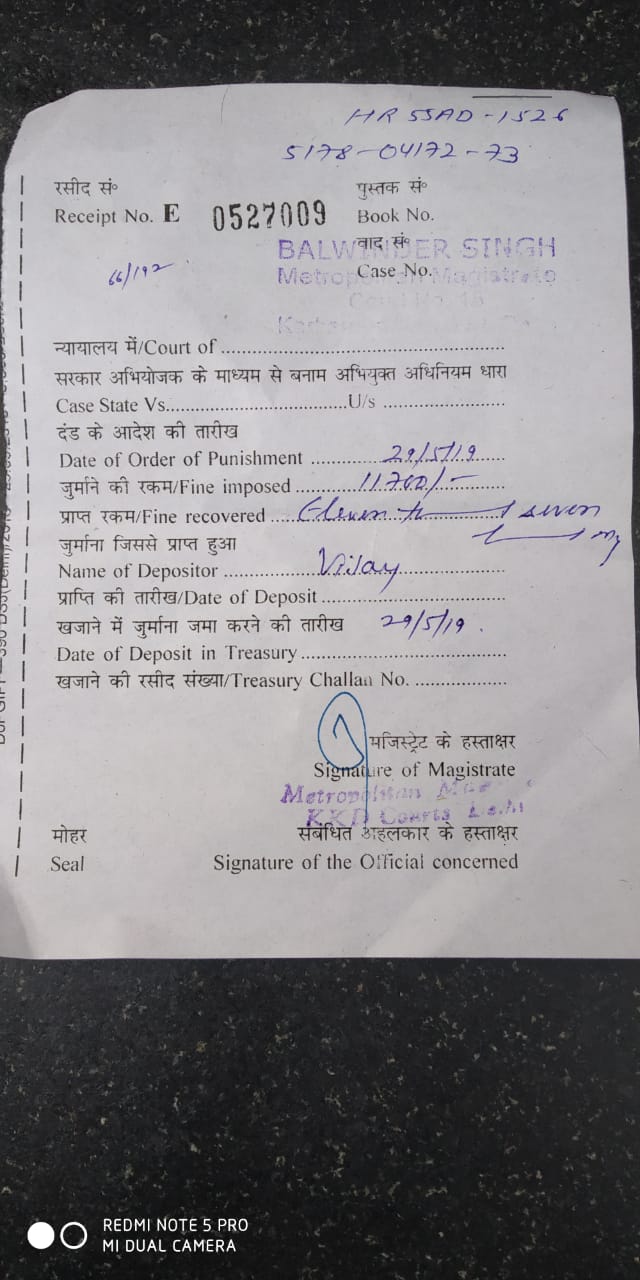 HR 55AD-1526
5178-04172-73
रसीद सं० पुस्तक सं०
Receipt No. E 0527009 Book No.
वाद सं०
BALWINDER SINGH
66/192
Metropolitan Magistrate
Case No.
न्यायालय में/Court of
सरकार अभियोजक के माध्यम से बनाम अभियुक्त अधिनियम धारा
Case State Vs. U/s
दंड के आदेश की तारीख
Date of Order of Punishment 29/5/19
जुर्माने की रकम/Fine imposed 11700/-
प्राप्त रकम/Fine recovered Eleven seven
जुर्माना जिससे प्राप्त हुआ
Name of Depositor Vijay
प्राप्ति की तारीख/Date of Deposit
खजाने में जुर्माना जमा करने की तारीख 29/5/19.
Date of Deposit in Treasury
खजाने की रसीद संख्या/Treasury Challan No.
मजिस्ट्रेट के हस्ताक्षर
Signature of Magistrate
Metropolitan
KKD Courts Delhi
मोहर संबंधित अहलकार के हस्ताक्षर
Seal Signature of the Official concerned
REDMI NOTE 5 PRO
MI DUAL CAMERA